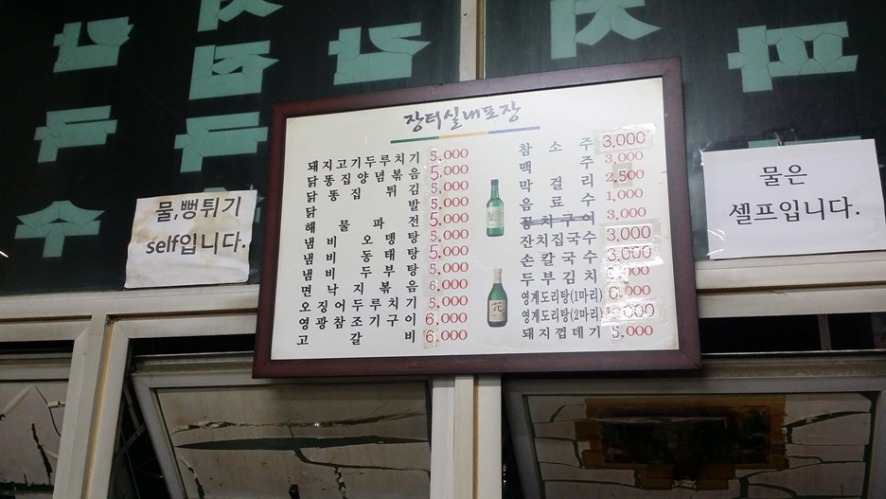 장터실내포장
돼지고기두루치기 5,000
닭똥집양념볶음 5,000
닭 똥 집 튀 김 5,000
닭 발 5,000
해 물 파 전 5,000
냄 비 오 뎅 탕 5,000
냄 비 동 태 탕 5,000
냄 비 두 부 탕 5,000
면 낙 지 볶 음 6,000
오징어두루치기 5,000
영광참조기구이 6,000
고 갈 비 6,000
참 소 주 3,000
맥 주 3,000
막 걸 리 2,500
음 료 수 1,000
꽁치구이 3,000
잔치집국수 3,000
손칼국수 3,000
두부김치
영계도리탕(1마리)
영계도리탕(2마리)
돼지껍데기 5,000
물,뻥튀기
self입니다.
물은
셀프입니다.